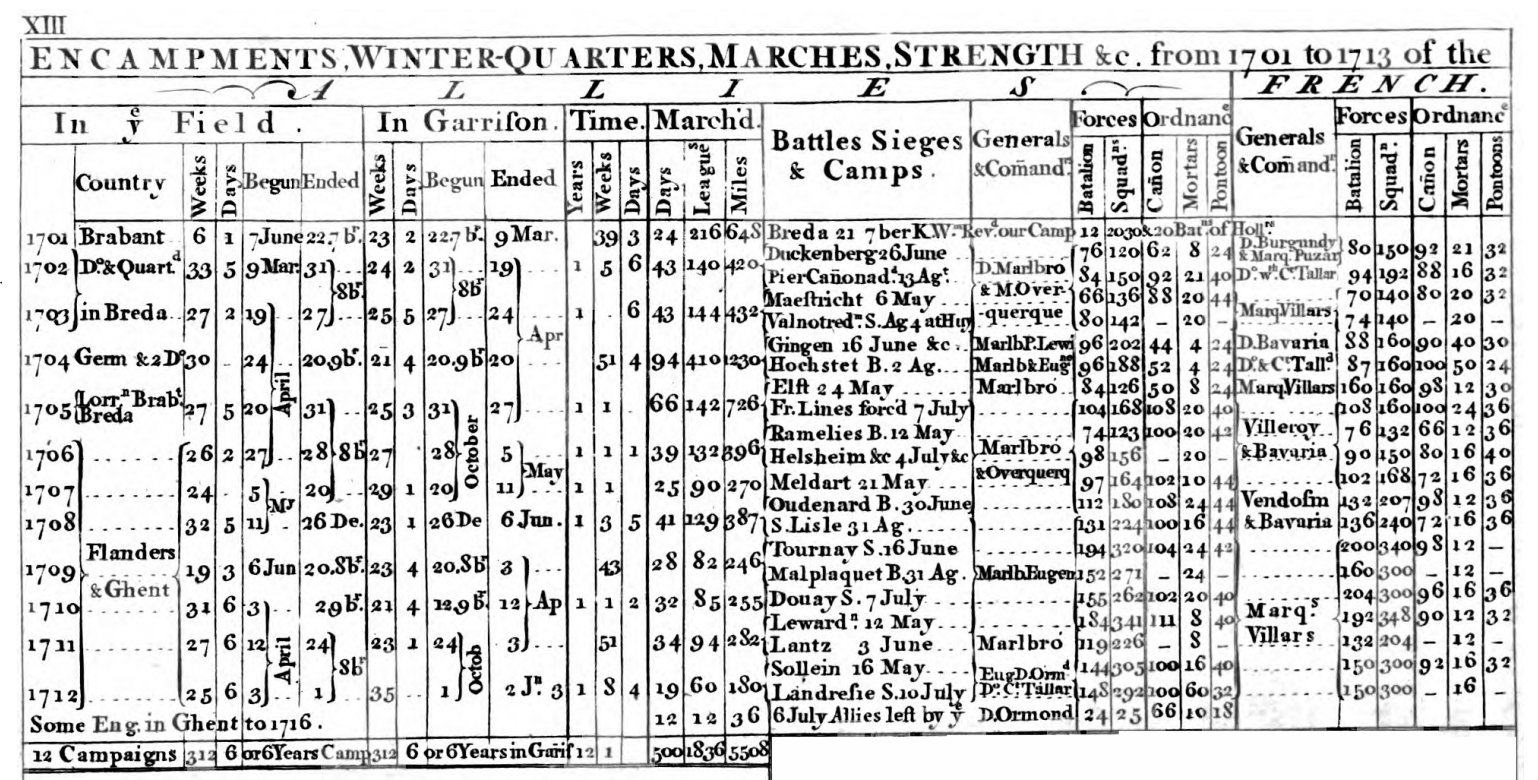 XIII
ENCAMPMENTS, WINTER-QUARTERS, MARCHES, STRENGTH &c. from 1701 to 1713 of the
A L L I E S FRENCH.
In yͤ Field. In Garriſon. Time. March'd. Battles Sieges & Camps. Generals &Com̃and.ʳˢ Forces Ordnancͤ Generals &Com̃andʳˢ Forces Ordnancͤ
Country Weeks Days Begun Ended Weeks Days Begun Ended Years Weeks Days Days Leagueˢ Miles Batalion Squad.ⁿˢ Cañon Mortars Pontoon Batalion Squad.ⁿ Cañon Mortars Pontoons
1701 Brabant 6 1 7 June 22.7 bʳ. 23 2 22.7 bʳ. 9 Mar. 39 3 24 216 648 Breda 21 7ber K.Wᵐ Rev.ᵈ our Camp 12 20 30 &20 Bat.ⁿˢ of Hollⁿˢ
1702 Dº.&Quart.ᵈ 33 5 9 Mar. 31 24 2 31 19 1 5 6 43 140 420 Duckenberg 26 June 76 120 62 8 24 D.Burgundy & Marq. Puzar 80 150 92 21 32
8bʳ. 8bʳ Pier Cañonad.ᵈ 13 Agᵗ. D.Marlbro 84 150 92 21 40 Dº. wᵗʰ Cᵗ Tallar 94 192 88 16 32
Maeſtricht 6 May & M.Over- 66 136 88 20 44 70 140 80 20 32
1703 in Breda 27 2 19 27 25 5 27 24 1 . 6 43 144 432 Valnotredⁿ. S. Ag 4 at Huy -querque 80 142 – 20 – Marq Villars 74 140 – 20 –
Apr Gingen 16 June &c. Marlb P. Lewi 96 202 44 4 24 D.Bavaria 88 160 90 40 30
1704 Germ & 2 Dº 30 . 24 20.9bʳ. 21 4 20.9 bʳ 20 51 4 94 410 1230 Hochstet B. 2 Ag. Marlb & Eugⁿᵉ 96 188 52 4 24 Dº. & Cᵗ. Tall.ᵈ 87 160 100 50 24
April Elft 24 May Marlbro 84 126 50 8 24 Marq Villars 160 160 98 12 30
1705 Lorr.ⁿ Brabᵗ. Breda 27 5 20 31 25 3 31 27 1 1 . 66 142 726 Fr. Lines forc'd 7 July 104 168 108 20 40 108 160 100 24 36
October Ramelies B. 12 May 74 123 100 20 42 Villeroy 76 132 66 12 36
1706 26 2 27 28 8b 27 28 5 1 1 1 39 132 396 Helsheim &c 4 July &c Marlbro 98 156 – 20 – & Bavaria 90 150 80 16 40
May Meldart 21 May &Overquerq 97 164 102 10 44 102 168 72 16 36
1707 24 . 5 20 29 1 20 11 1 1 25 90 270 Oudenard B. 30 June 112 180 108 24 44 Vendoſm 132 207 98 12 36
My
1708 32 5 11 26 De. 23 1 26 De 6 Jun. 1 3 5 41 129 387 S. Lisle 31 Ag. 131 224 100 16 44 & Bavaria 136 240 72 16 36
Flanders Tournay S. 16 June 194 320 104 24 42 200 340 98 12 –
1709 & Ghent 19 3 6 Jun 20.8bʳ. 23 4 20.8b 3 43 28 82 246 Malplaquet B. 31 Ag. Marlb Eugen 152 271 – 24 – 160 300 – 12 –
1710 31 6 3 29 bʳ. 21 4 12.9 bʳ. 12 Ap 1 1 2 32 85 255 Douay S. 7 July 155 262 102 20 40 204 300 96 16 36
Leward.ⁿ 12 May 184 341 111 8 40 Marq.ˢ 192 348 90 12 32
1711 27 6 12 24 23 1 24 3 51 34 94 282 Lantz 3 June Marlbro 119 226 – 8 – Villars 132 204 – 12 –
April 8bʳ Octob Sollein 16 May Eug D. Ormᵈ 144 305 100 16 40 150 300 92 16 32
1712 25 6 3 1 35 1 2 Jⁿ. 3 1 8 4 19 60 180 Landreſie S. 10 July Dº. Cᵗ. Tallar 148 292 100 60 32 150 300 – 16 –
Some Eng. in Ghent to 1716. 12 12 36 6 July Allies left by yͤ D.Ormond 24 25 66 10 18
12 Campaigns 312 6 or 6 Years Camp 312 6 or 6 Years in Gariſ 12 1 500 1836 5508